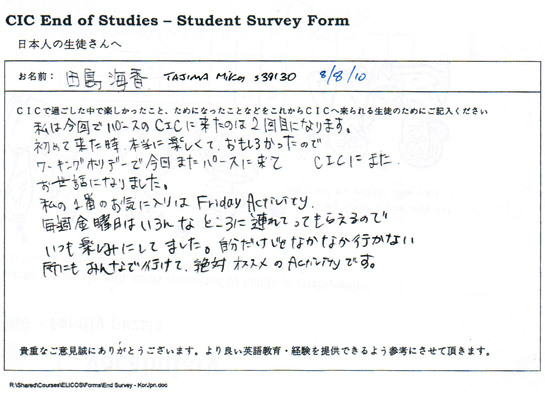 CIC End of Studies – Student Survey Form
日本人の生徒さんへ
お名前： 田島 海香 TAJIMA Mika s39130 8/8/10
ＣＩＣで過ごした中で楽しかったこと、ためになったことなどをこれからＣＩＣへ来られる生徒のためにご記入ください
私は今回でパースのCICに来たのは2回目になります。
初めて来た時、本当に楽しくて、おもしろかったので
ワーキングホリデーで今回またパースに来て CICにまた
お世話になりました。
私の1番のお気に入りは Friday Activity.
毎週金曜日はいろんなところに連れてってもらえるので
いつも楽しみにしてました。自分だけじゃなかなか行かない
所にもみんなで行けて、絶対オススメのActivityです。
貴重なご意見誠にありがとうございます。より良い英語教育・経験を提供できるよう参考にさせて頂きます。
R:\Shared\Courses\ELICOS\Forms\End Survey - KorJpn.doc